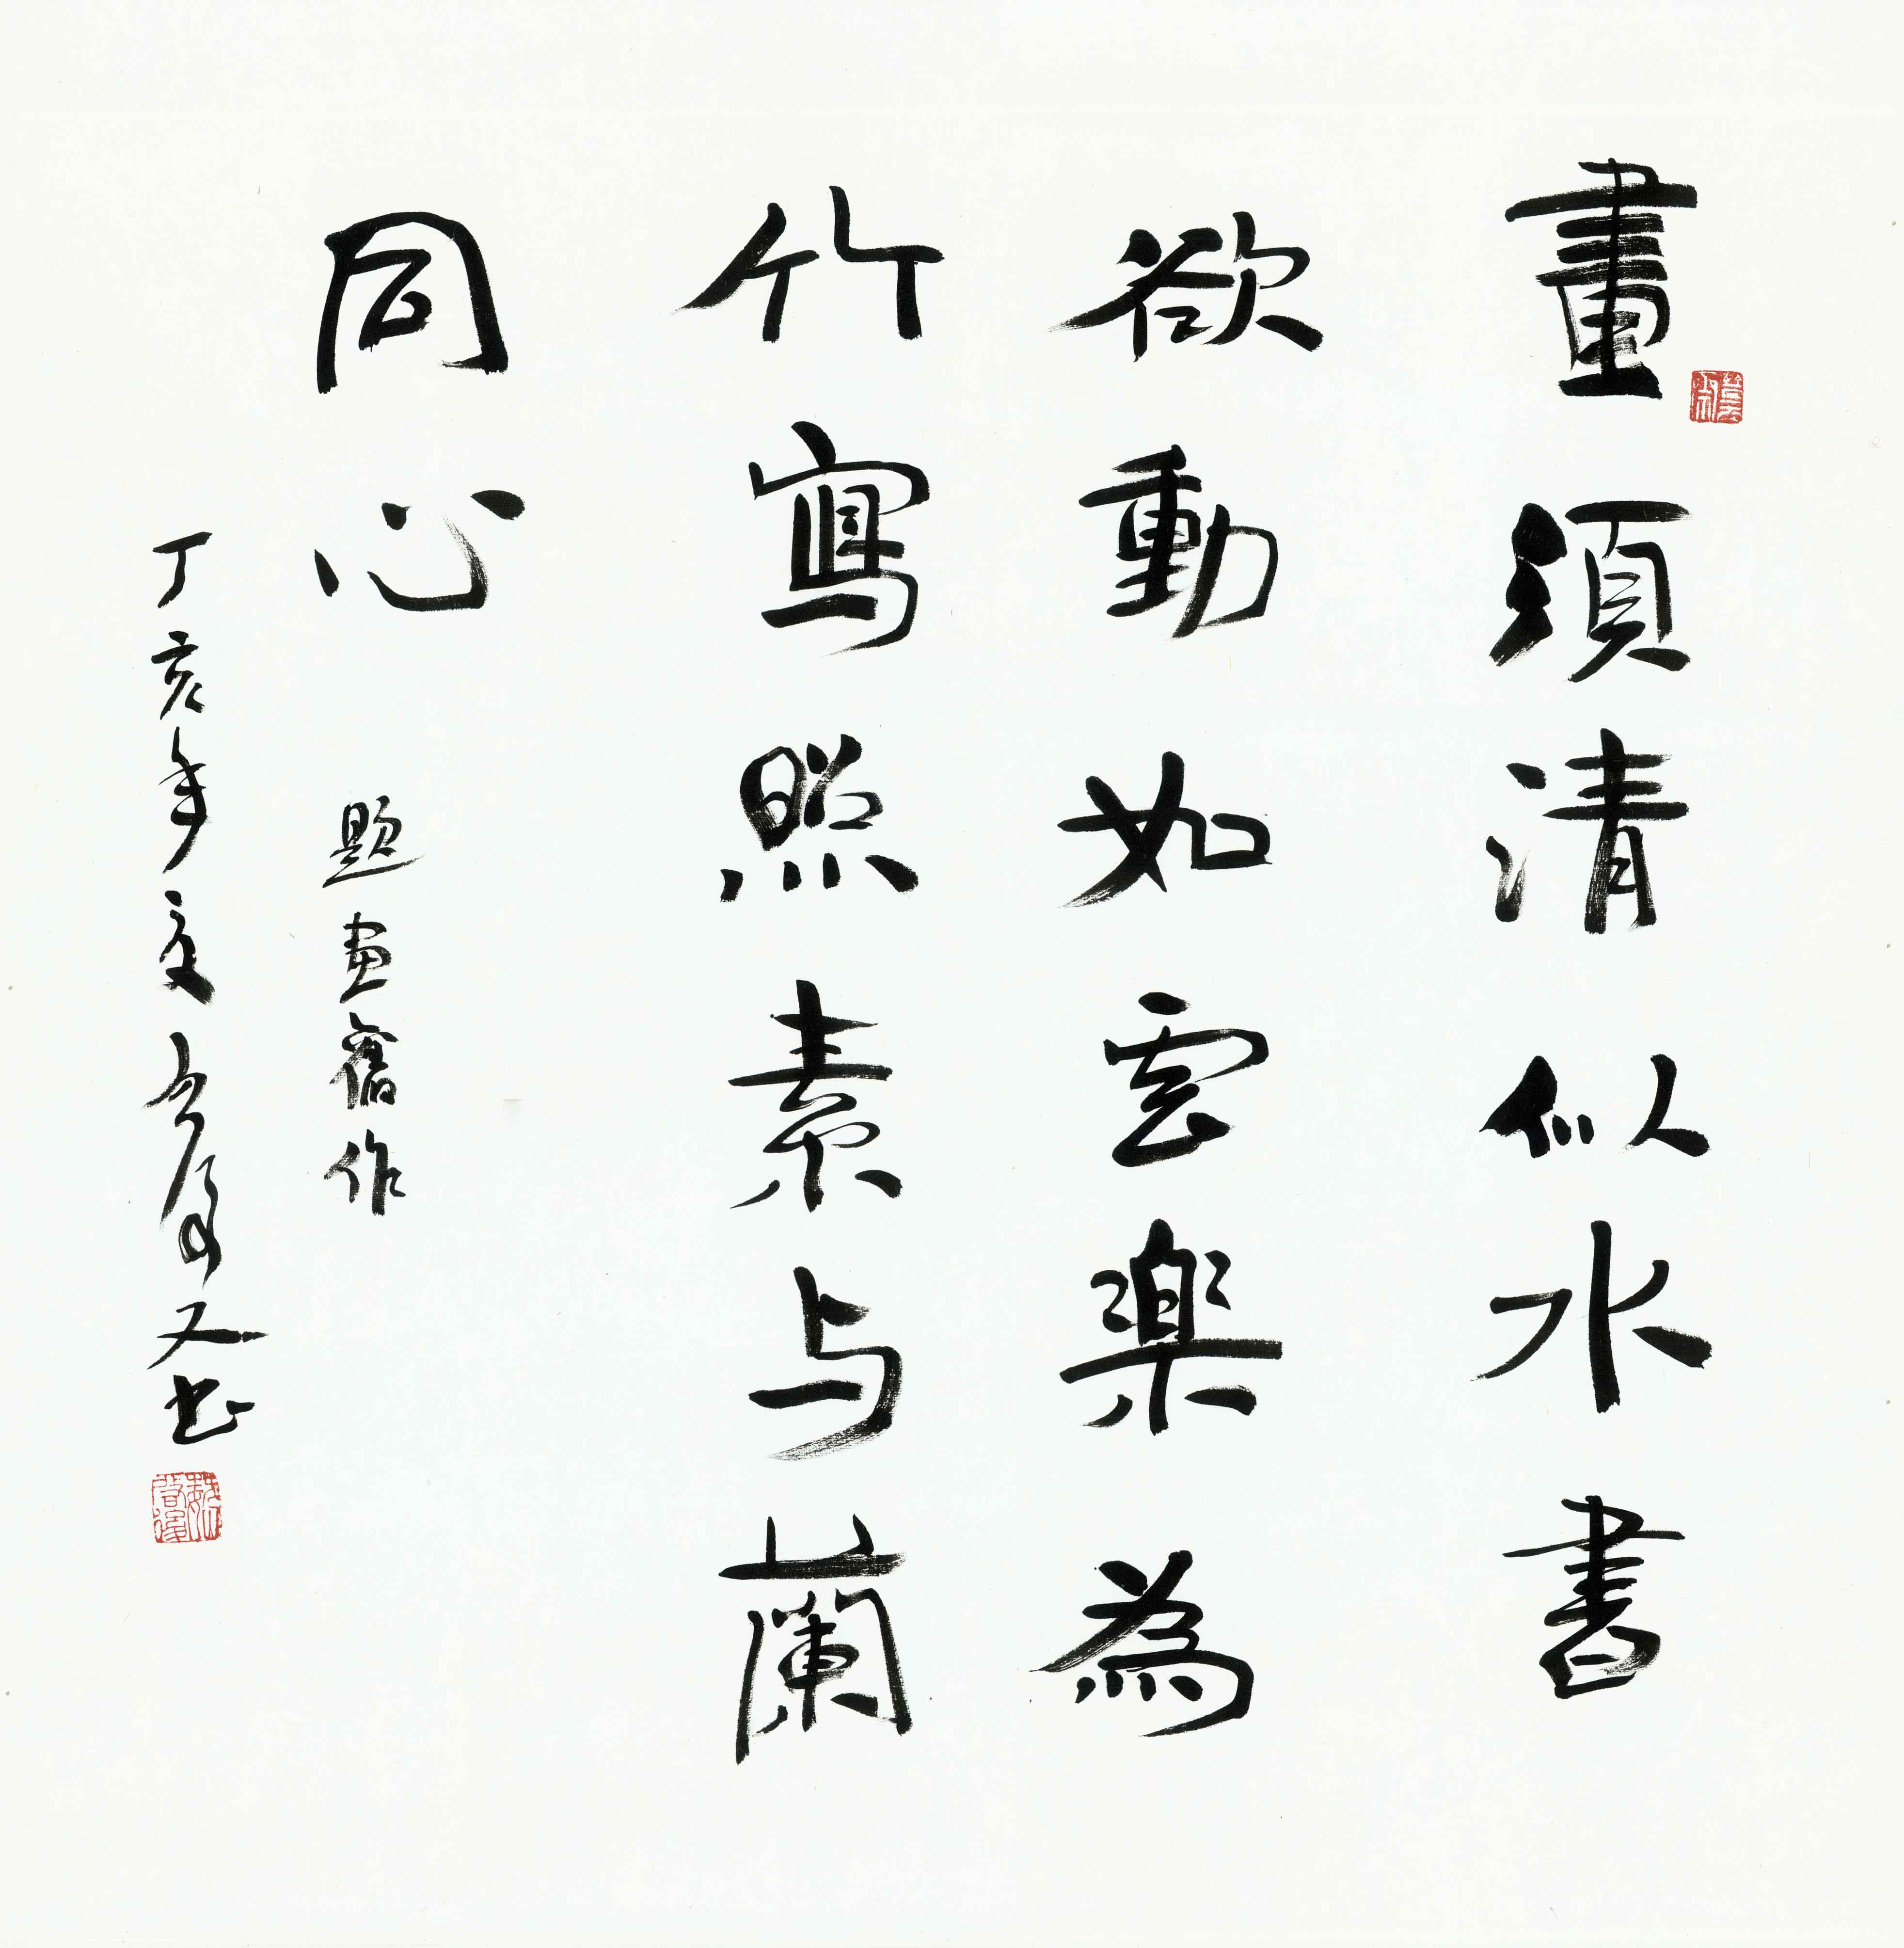 畫須清似水書
欲動如雲樂為
竹寫照素与蘭
同心
題畫舊作
丁亥年夏啓後又书